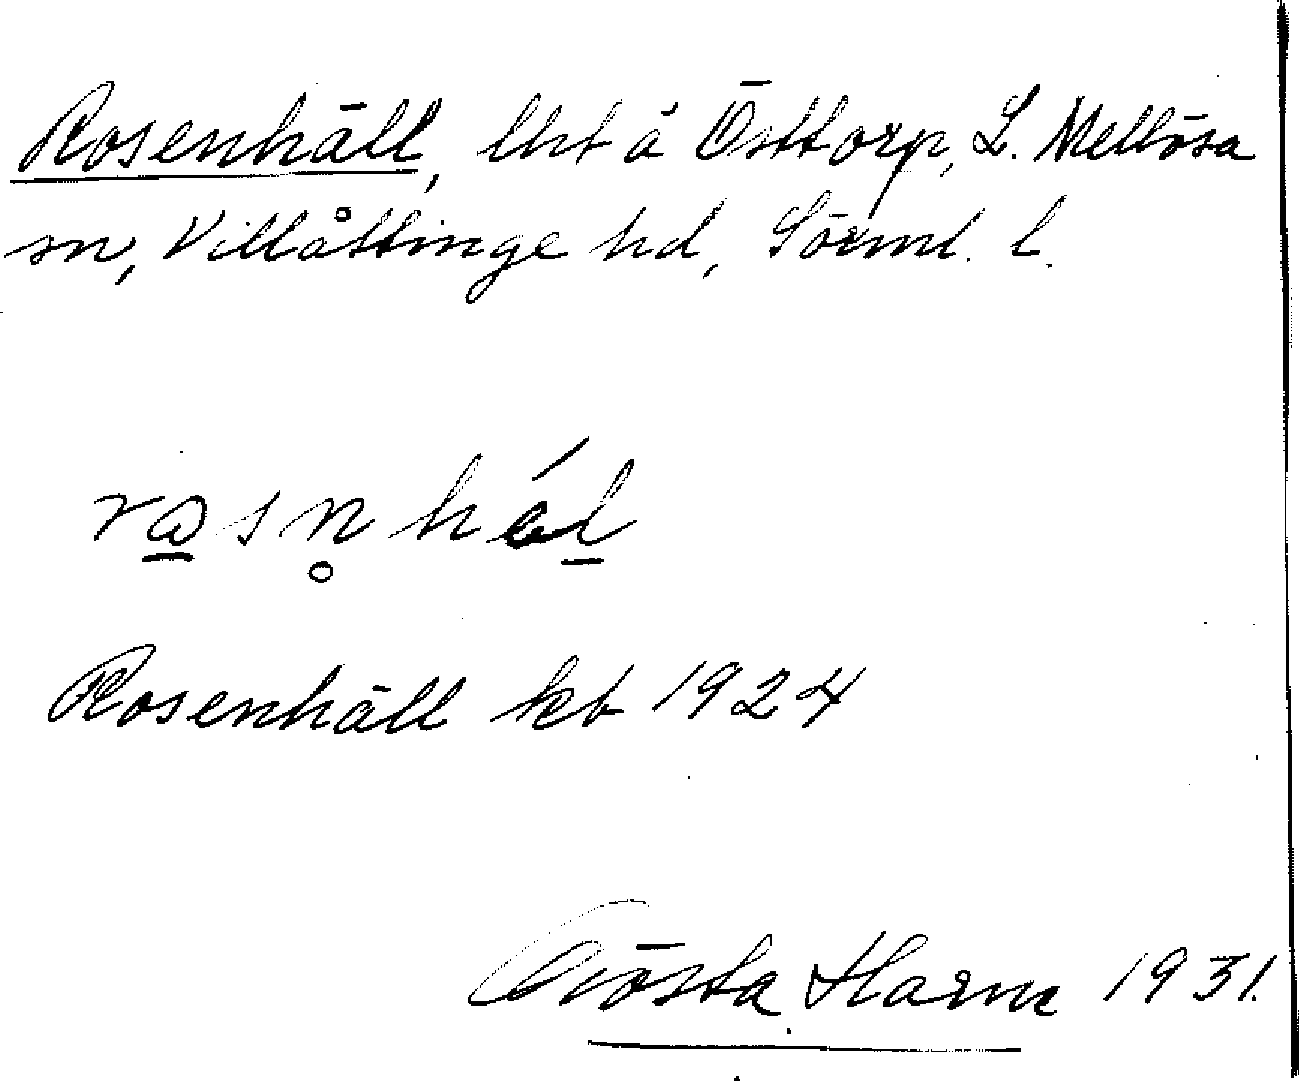 Rosenhäll, lht å Östtorp, L. Mellösa
sn, Villåttinge hd, Sörml. l.
rosn̥hél
Rosenhäll kb 1924
Gösta Harm 1931.